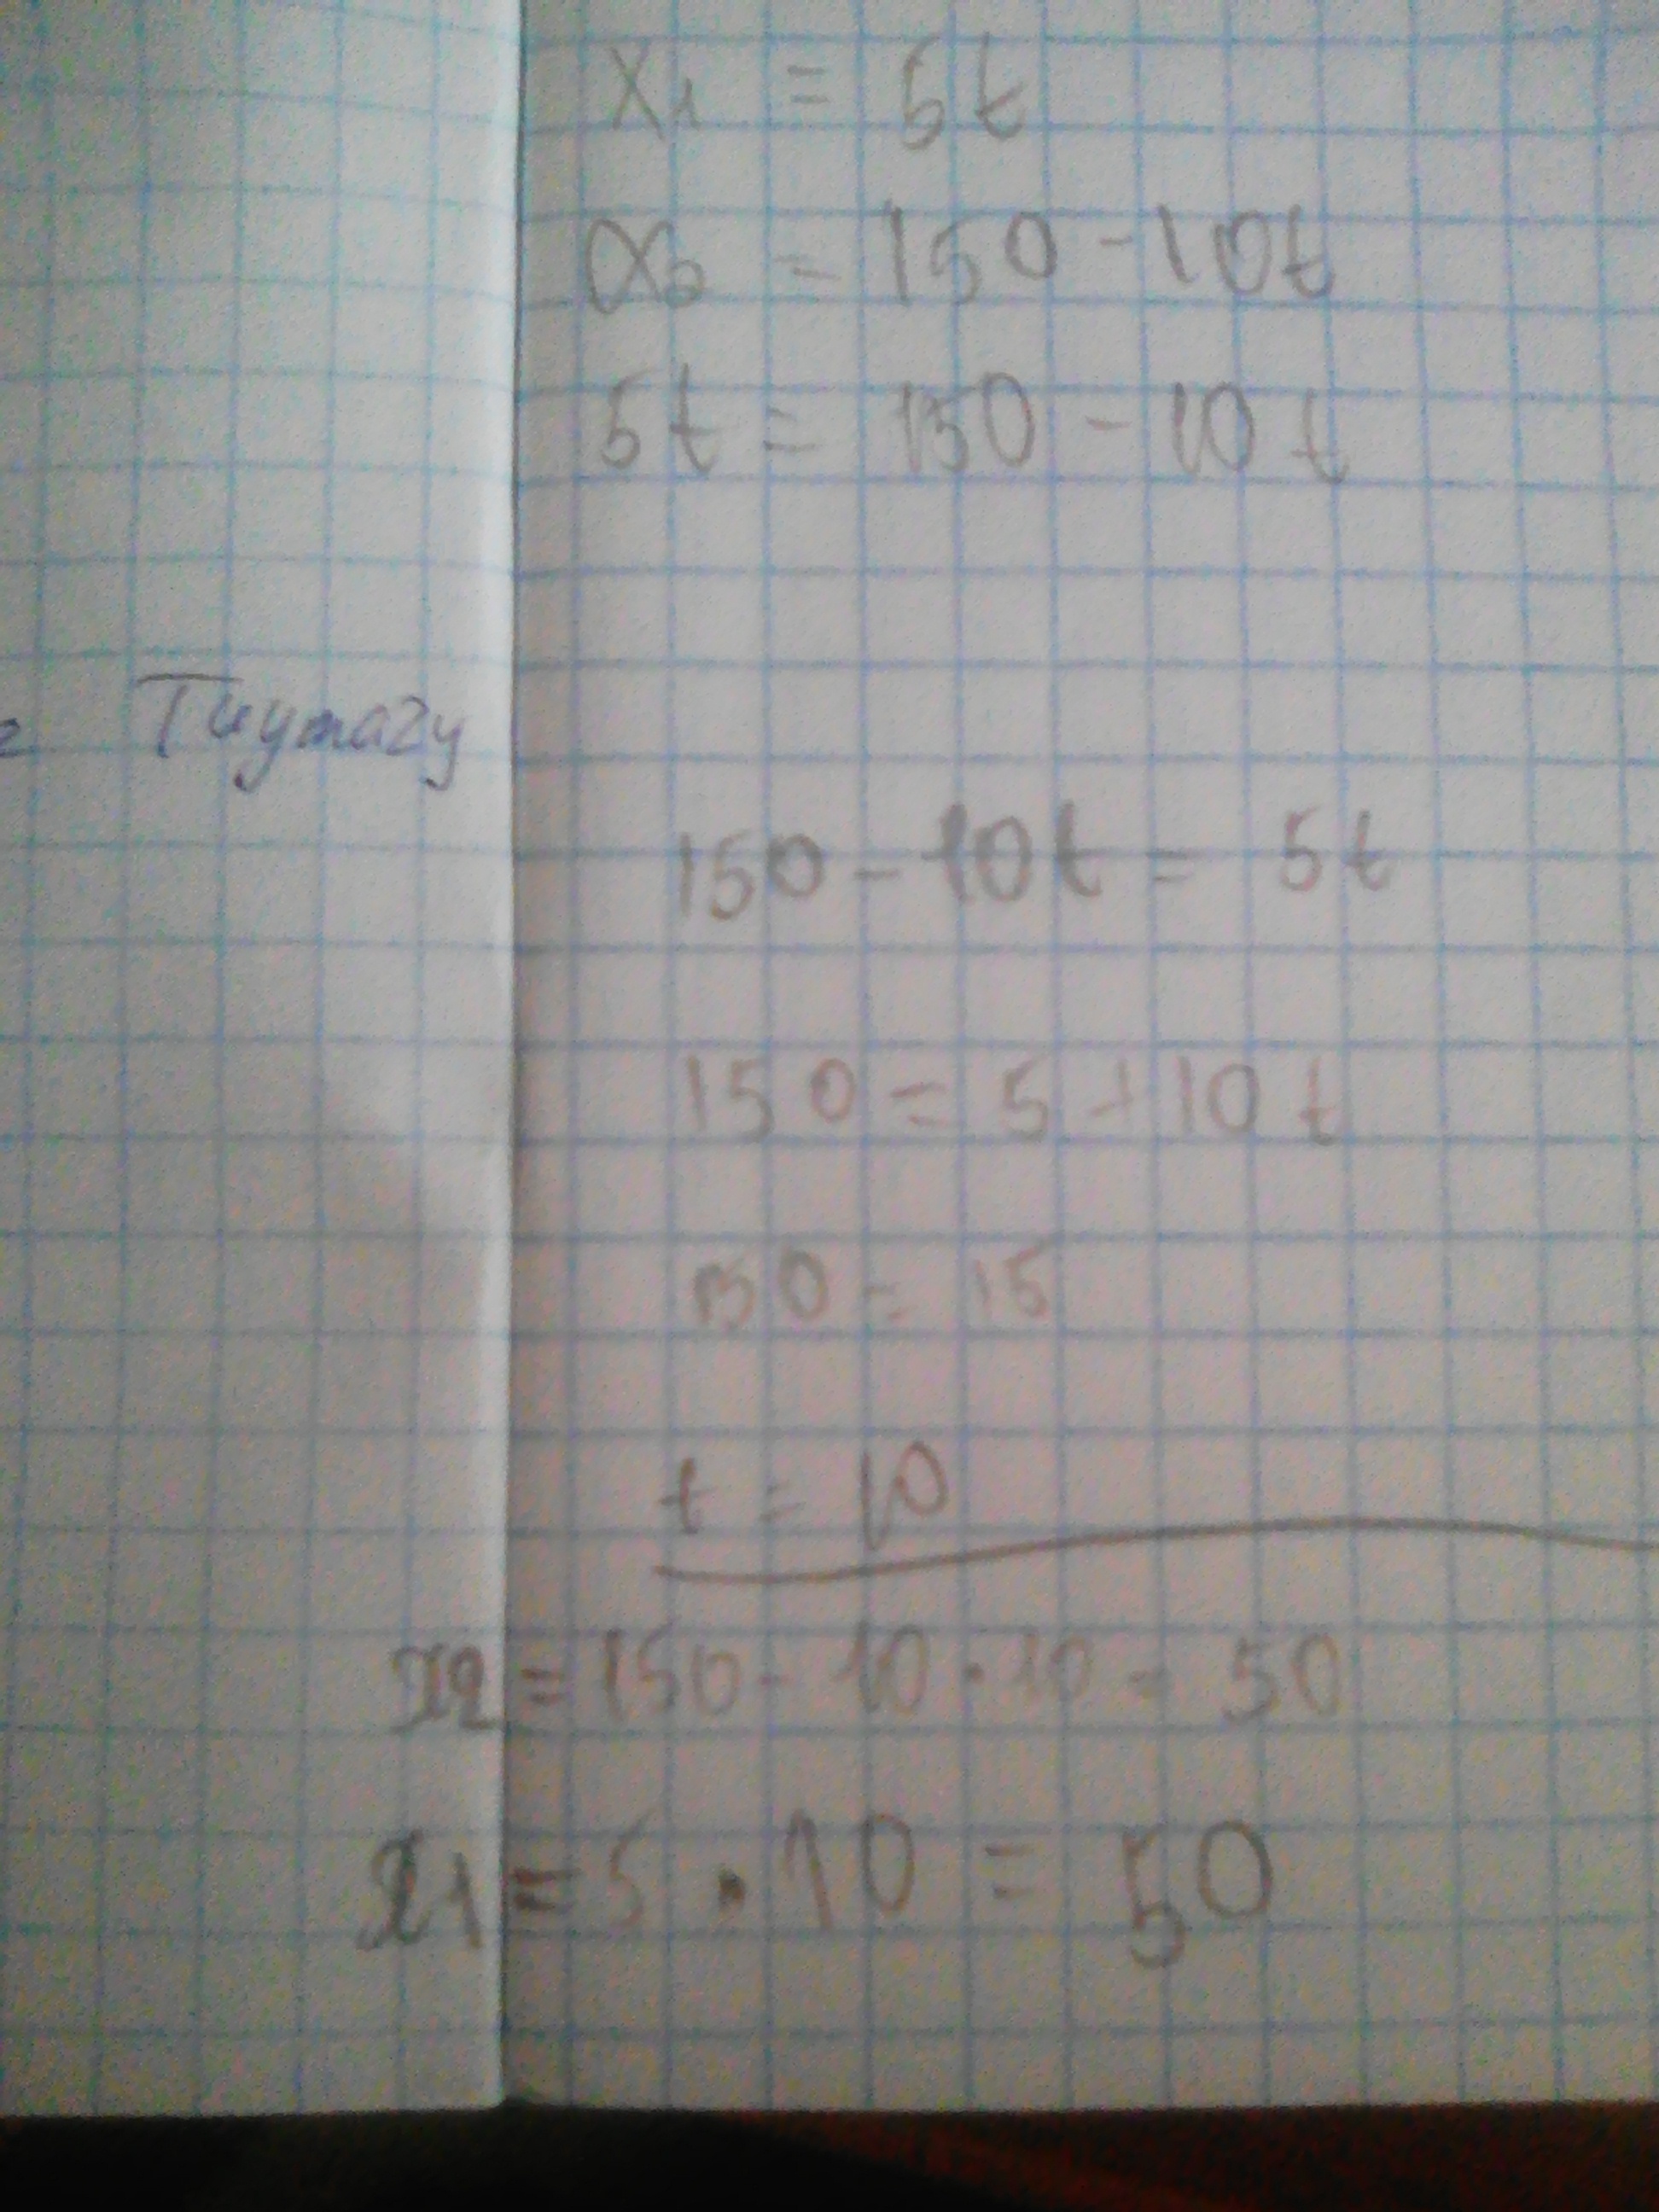 x1 = 5t
x2 = 150 - 10t
5t = 150 - 10t
150 - 10t = 5t
150 = 5 + 10t
150 = 15
t = 10
x2 = 150 - 10 · 10 = 50
x1 = 5 · 10 = 50